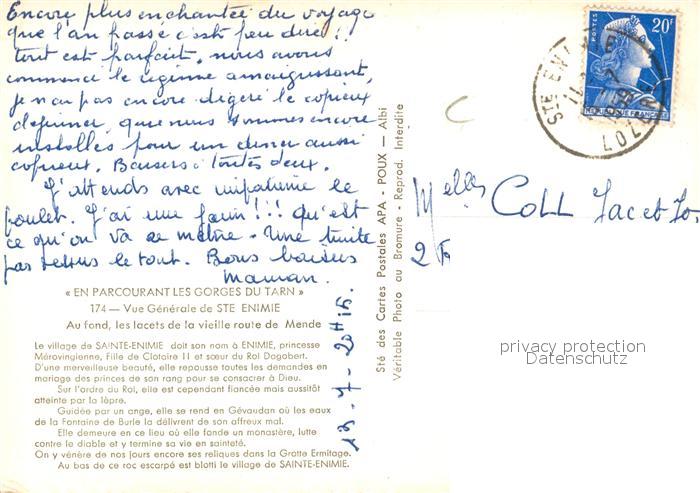 Encore plus enchantée du voyage
que l'an passé c'est peu dire !!
tout est parfait, nous avons
commencé le régime amaigrissant,
je n'ai pas encore digéré le copieux
déjeuner, que nous sommes encore
installés pour un diner aussi
copieux. Baisers à toutes deux.
J'attends avec impatience le
poulet. J'ai une faim !!! qu'est
ce qu'on va se mettre. Une truite
par dessus le tout. Bons baisers
Maman.
« EN PARCOURANT LES GORGES DU TARN »
174 — Vue Générale de STE ENIMIE
Au fond, les lacets de la vieille route de Mende
Le village de SAINTE-ENIMIE doit son nom à ENIMIE, princesse
Mérovingienne, Fille de Clotaire II et sœur du Roi Dagobert.
D'une merveilleuse beauté, elle repousse toutes les demandes en
mariage des princes de son rang pour se consacrer à Dieu.
Sur l'ordre du Roi, elle est cependant fiancée mais aussitôt
atteinte par la lèpre.
Guidée par un ange, elle se rend en Gévaudan où les eaux
de la Fontaine de Burle la délivrent de son affreux mal.
Elle demeure en ce lieu où elle fonde un monastère, lutte
contre le diable et y termine sa vie en sainteté.
On y vénère de nos jours encore ses reliques dans la Grotte Ermitage.
Au bas de ce roc escarpé est blotti le village de SAINTE-ENIMIE.
13-7- 20H15.
Sté des Cartes Postales APA - POUX — Albi
Véritable Photo au Bromure - Reprod. Interdite
C
POSTES
20F
REPUBLIQUE FRANÇAISE
STE ENIMIE
LOZERE
Melles COLL Jac et Jo
2
privacy protection
Datenschutz